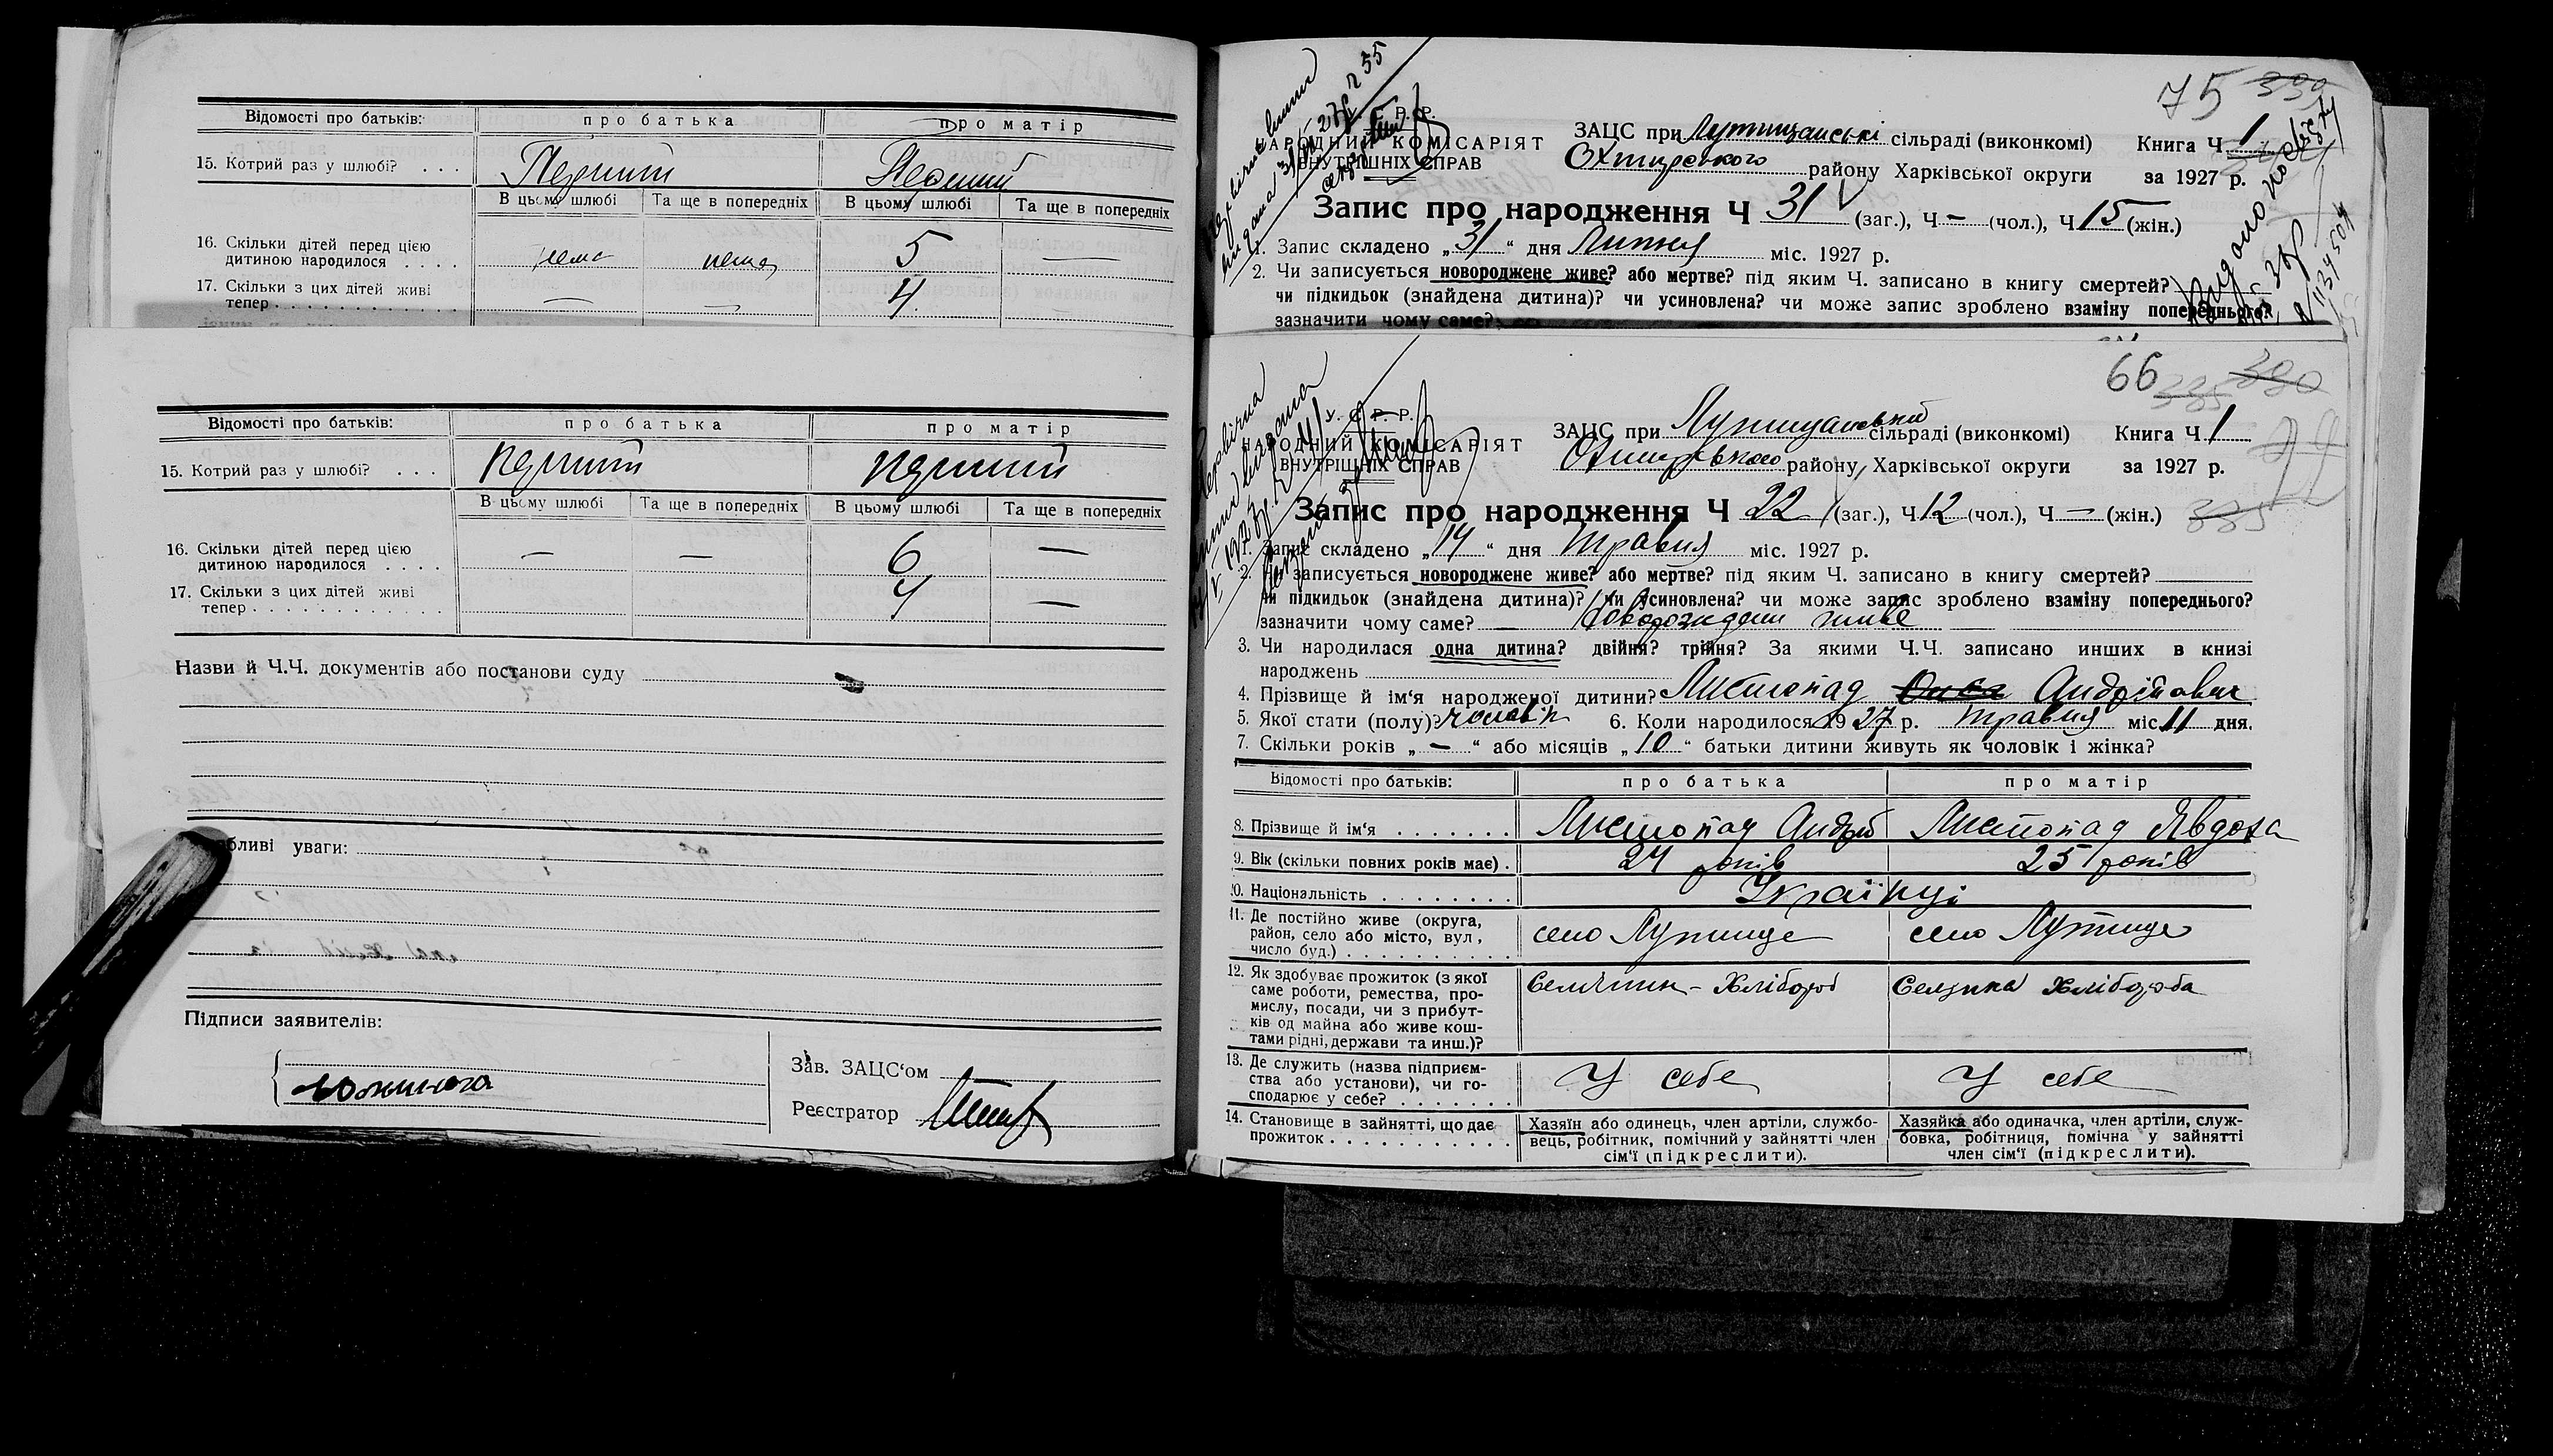 Відомості про батьків: про батька про матір
15. Котрий раз у шлюбі? . . . Перший Перший
В цьому шлюбі Та ще в попередніх В цьому шлюбі Та ще в попередніх
16. Скільки дітей перед цією
дитиною народилося . . . . нема нема 5 —
17. Скільки з цих дітей живі
тепер . . . . . . . . . . . . — — 4
Відомості про батьків: про батька про матір
15. Котрий раз у шлюбі? . . . перший перший
В цьому шлюбі Та ще в попередніх В цьому шлюбі Та ще в попередніх
16. Скільки дітей перед цією
дитиною народилося . . . . — — 6 —
17. Скільки з цих дітей живі
тепер . . . . . . . . . . . . 4 —
Назви й Ч.Ч. документів або постанови суду
бливі уваги:
Підписи заявителів:
Зав. ЗАЦС'ом
Реєстратор
75 339
Р. Р.
АРОДНИЙ КОМІСАРІЯТ
ВНУТРІШНІХ СПРАВ
ЗАЦС при Лутищанські сільраді (виконкомі) Книга Ч 1
Охтирського району Харківської округи за 1927 р.
Запис про народження Ч 31 (заг.), Ч — (чол.), Ч 15 (жін.)
1. Запис складено „31“ дня Липня міс. 1927 р.
2. Чи записується новороджене живе? або мертве? під яким Ч. записано в книгу смертей?
чи підкидьок (знайдена дитина)? чи усиновлена? чи може запис зроблено взаміну попереднього?
зазначити чому саме?
66 335 330
У. С. Р. Р.
ОДНИЙ КОМІСАРІЯТ
ВНУТРІШНІХ СПРАВ
ЗАЦС при Лутищанській сільраді (виконкомі) Книга Ч 1
Охтирського району, Харківської округи за 1927 р.
Запис про народження Ч 22 (заг.), Ч 12 (чол.), Ч — (жін.) 335
1. Запис складено „14“ дня травня міс. 1927 р.
2. Чи записується новороджене живе? або мертве? під яким Ч. записано в книгу смертей?
чи підкидьок (знайдена дитина)? чи усиновлена? чи може запис зроблено взаміну попереднього?
зазначити чому саме? — Новорождени живе —
3. Чи народилася одна дитина? двійня? трійня? За якими Ч.Ч. записано инших в книзі
народжень
4. Прізвище й ім'я народженої дитини? Листопад Андрійович
5. Якої стати (полу)? чоловік 6. Коли народилося 1927 р. травня міс 11 дня.
7. Скільки років „—“ або місяців „10“ батьки дитини живуть як чоловік і жінка?
Відомості про батьків: про батька про матір
8. Прізвище й ім'я . . . . . . . Листопад Андрій Листопад Явдоха
9. Вік (скільки повних років має) . 24 років 25 років
10. Національність . . . . . . . . Українці
11. Де постійно живе (округа,
район, село або місто, вул,
число буд.) . . . . . . . . . . село Лутище село Лутище
12. Як здобуває прожиток (з якої
саме роботи, ремества, про-
мислу, посади, чи з прибут-
ків од майна або живе кош-
тами рідні, держави та инш.)? Селянин - Хлібороб Селянка Хлібороба
13. Де служить (назва підприєм-
ства або установи), чи го-
сподарює у себе? . . . . . . . У себе У себе
14. Становище в зайнятті, що дає
прожиток . . . . . . . . . . .
Хазяїн або одинець, член артіли, службо-
вець, робітник, помічний у зайнятті член
сім'ї (підкреслити).
Хазяйка або одиначка, член артіли, служ-
бовка, робітниця, помічна у зайнятті
член сім'ї (підкреслити).